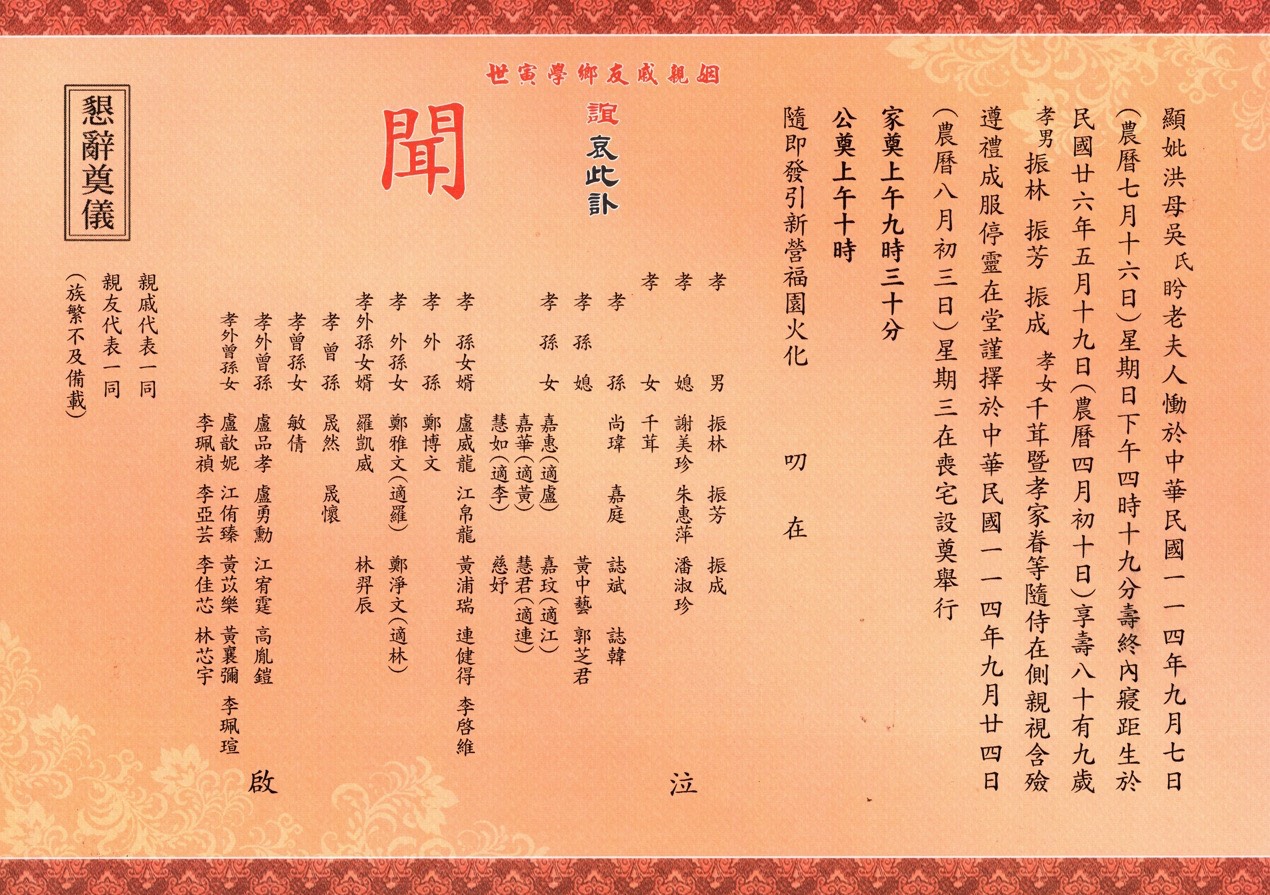 顯妣洪母吳氏昑老夫人慟於中華民國一一四年九月七日
(農曆七月十六日)星期日下午四時十九分壽終內寢距生於
民國廿六年五月十九日(農曆四月初十日)享壽八十有九歲
孝男振林 振芳 振成 孝女千茸暨孝家眷等隨侍在側親視含殮
遵禮成服停靈在堂謹擇於中華民國一一四年九月廿四日
(農曆八月初三日)星期三在喪宅設奠舉行
家奠上午九時三十分
公奠上午十時
隨即發引新營福園火化 叨在
姻親戚友鄉學寅世
誼哀此訃
聞
孝男 振林 振芳 振成
孝媳 謝美珍 朱惠萍 潘淑珍
孝女 千茸
孝孫 尚瑋 嘉庭 誌斌 誌韓
孝孫媳 黃中藝 郭芝君
孝孫女 嘉惠(適盧) 嘉玟(適江)
嘉華(適黃) 慧君(適連)
慧如(適李) 慈妤
孝孫女婿 盧威龍 江帛龍 黃浦瑞 連健得 李啓維
孝外孫 鄭博文
孝外孫女 鄭雅文(適羅) 鄭淨文(適林)
孝外孫女婿 羅凱威 林羿辰
孝曾孫 晟然 晟懷
孝曾孫女 敏倩
孝外曾孫 盧品孝 盧勇勳 江宥霆 高胤鎧
孝外曾孫女 盧歆妮 江侑臻 黃苡樂 黃襄彌 李珮瑄
李珮禎 李亞芸 李佳芯 林芯宇
泣
啟
親戚代表一同
親友代表一同
(族繁不及備載)
懇辭奠儀